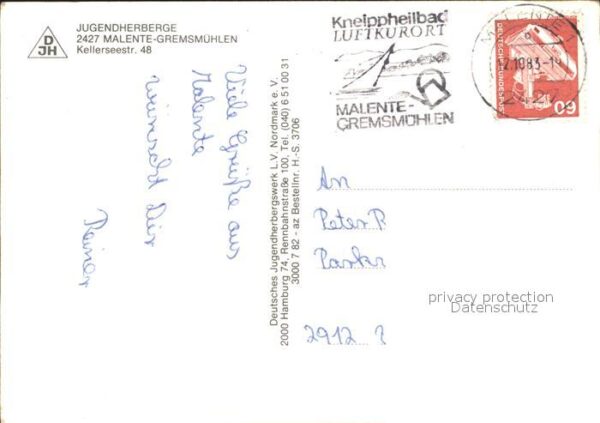 D
JH
JUGENDHERBERGE
2427 MALENTE-GREMSMÜHLEN
Kellerseestr. 48
Viele Grüße aus
Malente
wünscht Dir
Reiner
Deutsches Jugendherbergswerk L.V. Nordmark e. V.
2000 Hamburg 74, Rennbahnstraße 100, Tel. (040) 6 51 00 31
3000 7 82 - az Bestellnr. H.-S. 3706
Kneippheilbad
LUFTKURORT
MALENTE-
GREMSMÜHLEN
MALENTE 1
2.10.83-1
2427
DEUTSCHE BUNDESPOST
60
An
Peter P
Parkr
2912 ?
privacy protection
Datenschutz